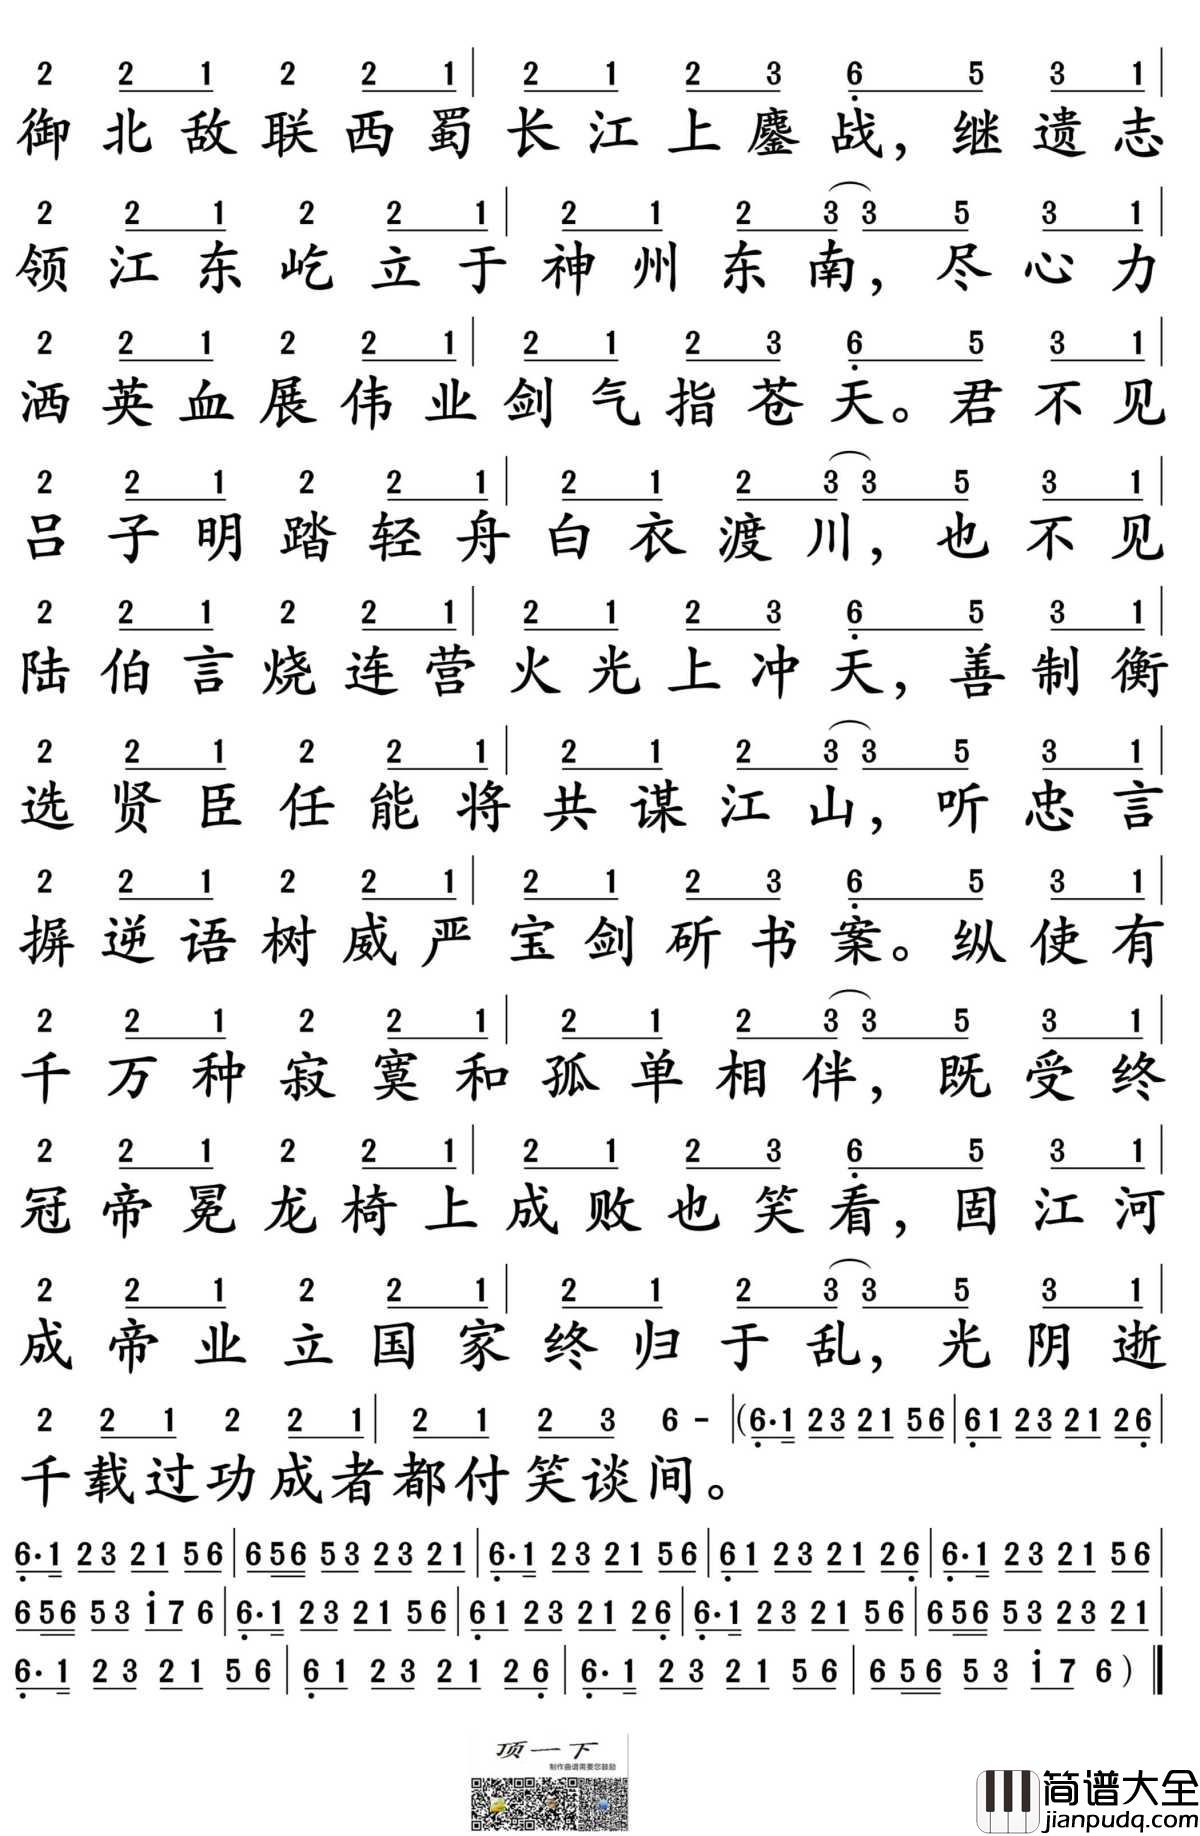 2 2 1 2 2 1 | 2 1 2 3 6 5 3 1 |
御北敌联西蜀长江上鏖战，继遗志
2 2 1 2 2 1 | 2 1 2 3 3 5 3 1 |
领江东屹立于神州东南，尽心力
2 2 1 2 2 1 | 2 1 2 3 6 5 3 1 |
洒英血展伟业剑气指苍天。君不见
2 2 1 2 2 1 | 2 1 2 3 3 5 3 1 |
吕子明踏轻舟白衣渡川，也不见
2 2 1 2 2 1 | 2 1 2 3 6 5 3 1 |
陆伯言烧连营火光上冲天，善制衡
2 2 1 2 2 1 | 2 1 2 3 3 5 3 1 |
选贤臣任能将共谋江山，听忠言
2 2 1 2 2 1 | 2 1 2 3 6 5 3 1 |
摒逆语树威严宝剑斫书案。纵使有
2 2 1 2 2 1 | 2 1 2 3 3 5 3 1 |
千万种寂寞和孤单相伴，既受终
2 2 1 2 2 1 | 2 1 2 3 6 5 3 1 |
冠帝冕龙椅上成败也笑看，固江河
2 2 1 2 2 1 | 2 1 2 3 3 5 3 1 |
成帝业立国家终归于乱，光阴逝
2 2 1 2 2 1 | 2 1 2 3 6 - | (6·1 23 21 56 | 61 23 21 26 |
千载过功成者都付笑谈间。
6·1 23 21 56 | 656 53 23 21 | 6·1 23 21 56 | 61 23 21 26 | 6·1 23 21 56 |
656 53 i7 6 | 6·1 23 21 56 | 61 23 21 26 | 6·1 23 21 56 | 656 53 23 21 |
6·1 23 21 56 | 61 23 21 26 | 6·1 23 21 56 | 656 53 i7 6 ) ‖
顶一下
制作曲谱需要您鼓励
简谱大全
jianpudq.com